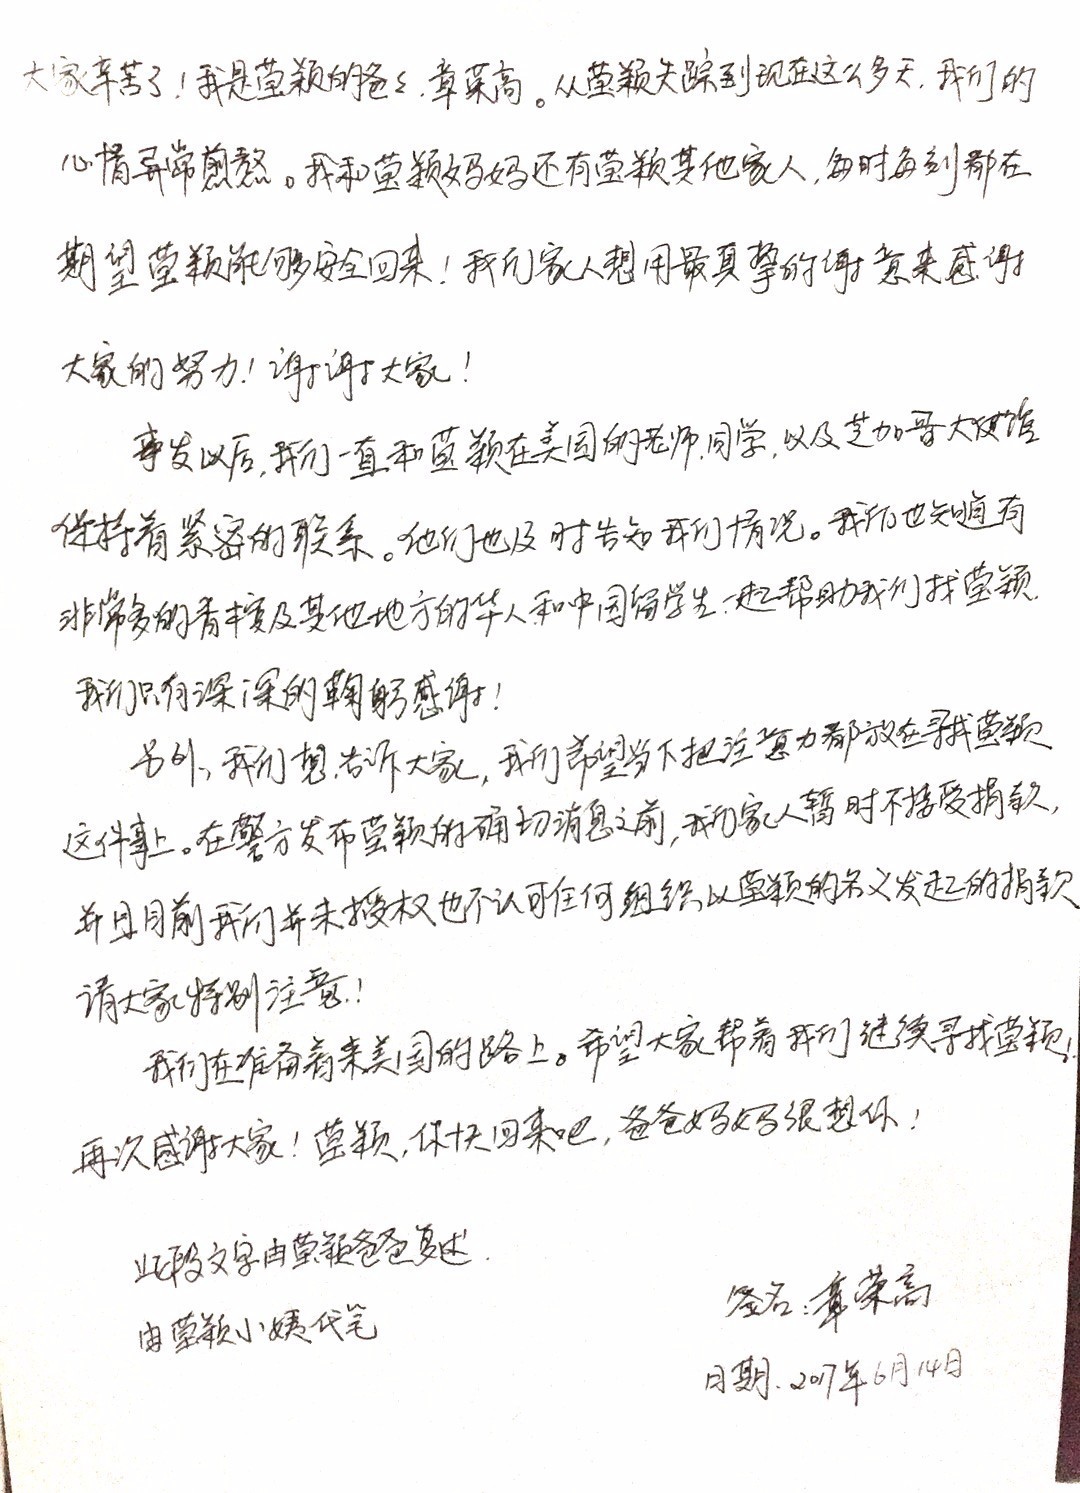 大家辛苦了！我是莹颖的爸爸,章荣高。从莹颖失踪到现在这么多天,我们的
心情异常煎熬。我和莹颖妈妈还有莹颖其他家人,每时每刻都在
期望莹颖能够安全回来！我们家人想用最真挚的谢意来感谢
大家的努力！谢谢大家！
事发以后,我们一直和莹颖在美国的老师,同学,以及芝加哥大使馆
保持着紧密的联系。他们也及时告知我们情况。我们也知道有
非常多的香槟及其他地方的华人和中国留学生一起帮助我们找莹颖.
我们只有深深的鞠躬感谢！
另外,我们想告诉大家,我们希望当下把注意力都放在寻找莹颖
这件事上。在警方发布莹颖的确切消息之前,我们家人暂时不接受捐款,
并且目前我们并未授权也不认可任何组织以莹颖的名义发起的捐款
请大家特别注意！
我们在准备着来美国的路上。希望大家帮着我们继续寻找莹颖！
再次感谢大家！莹颖,你快回来吧,爸爸妈妈很想你！
此段文字由莹颖爸爸复述.
由莹颖小姨代笔
签名:章荣高
日期.2017年6月14日